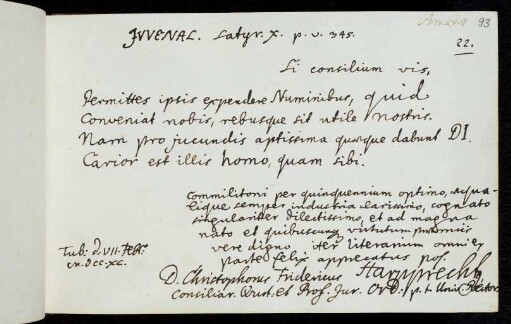 93
22.
JVVENAL. Satyr. X. p. v. 345.
Si consilium vis,
Permittes ipsis expendere Numinibus, quid
Conveniat nobis, rebusque sit utile nostris.
Nam pro jucundis aptissima quaeque dabunt DI.
Carior est illis homo, quam sibi.
Commilitoni per quinquennium optimo, aequa-
lique semper industria clarissimo, cognato
singulariter dilectissimo, et ad magna
nato et quibuscunq virtutum praemiis
vere digno iter literarium omni ex
parte felix apprecatus pos.
Tub. d. VII. Febr.
D. Christophorus Fridericus Harpprecht
Consiliar. Wurt. et Prof. Jur. Ord. p. t. Univ. Rector.